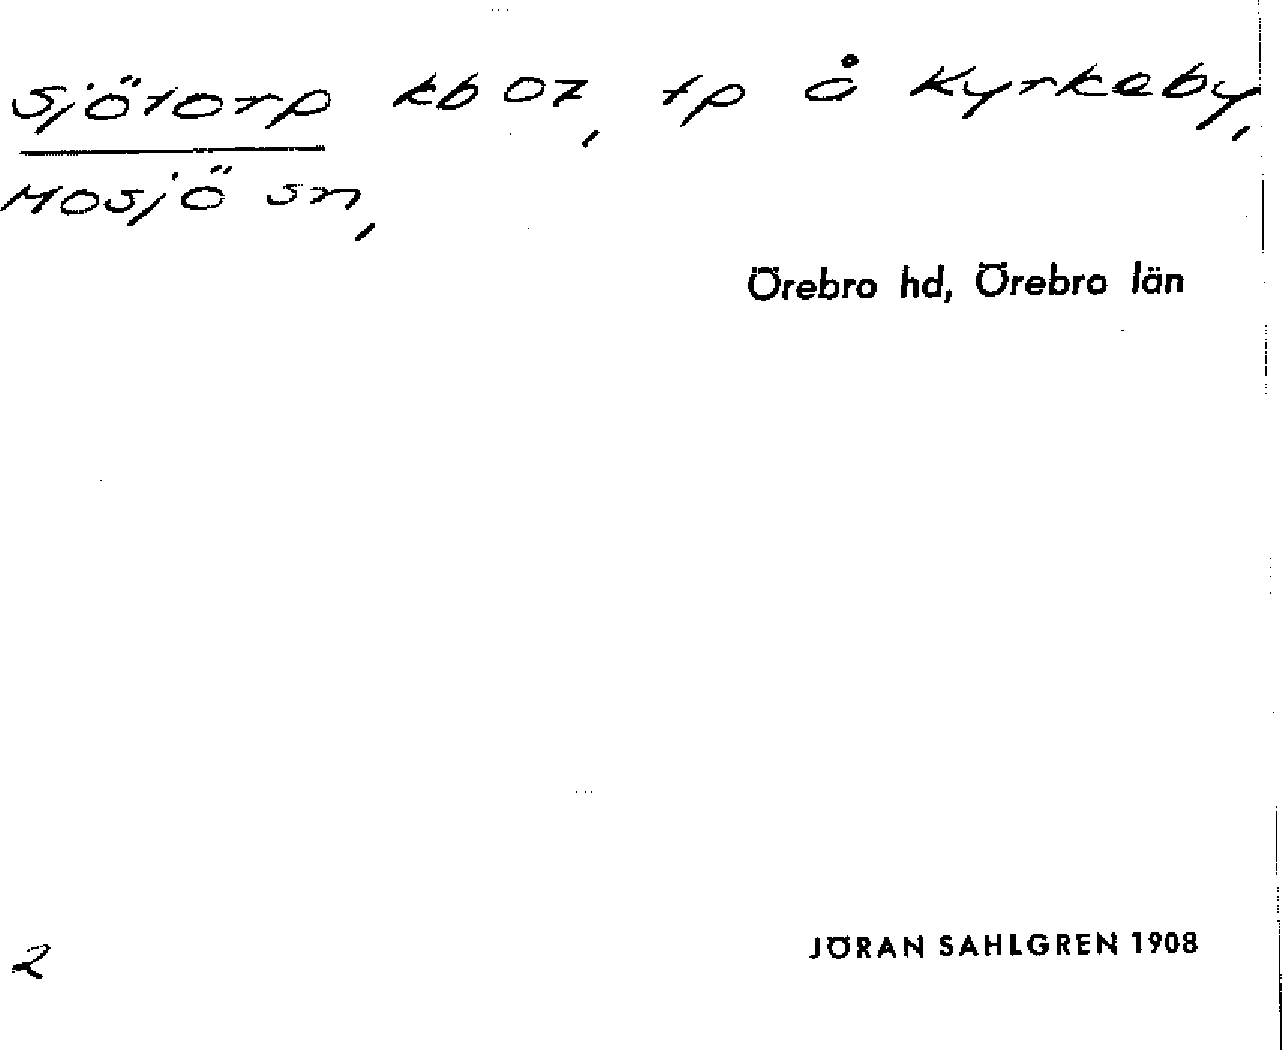 Sjötorp kb 07, tp å Kyrkeby,
Mosjö sn,
Örebro hd, Örebro län
2
JÖRAN SAHLGREN 1908